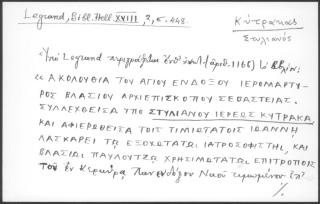 Legrand, Bibl. Hell. XVIII, 2, σ. 443.
Κύτρακας
Στυλιανός
Ὑπὸ Legrand περιγράφεται ὑπ' (ἀριθ. 1166) τὸ βιβλίον:
« ΑΚΟΛΟΥΘΙΑ ΤΟΥ ΑΓΙΟΥ ΕΝΔΟΞΟΥ ΙΕΡΟΜΑΡΤΥ-
ΡΟΣ ΒΛΑΣΙΟΥ ΑΡΧΙΕΠΙΣΚΟΠΟΥ ΣΕΒΑΣΤΕΙΑΣ.
ΣΥΛΛΕΧΘΕΙΣΑ ΥΠΟ ΣΤΥΛΙΑΝΟΥ ΙΕΡΕΩΣ ΚΥΤΡΑΚΑ
ΚΑΙ ΑΦΙΕΡΩΘΕΙΣΑ ΤΟΙΣ ΤΙΜΙΩΤΑΤΟΙΣ ΙΩΑΝΝΗ
ΛΑΣΚΑΡΕΙ ΤΩ ΕΞΟΧΩΤΑΤΩ ΙΑΤΡΟΣΟΦΙΣΤΗ, ΚΑΙ
ΒΛΑΣΙΩ ΠΑΥΛΟΥΤΖΩ ΧΡΗΣΙΜΩΤΑΤΩ ΕΠΙΤΡΟΠΟΙΣ
τοῦ ἐν Κερκύρᾳ Πανενδόξου Ναοῦ τιμωμένου ἐπ'
./.